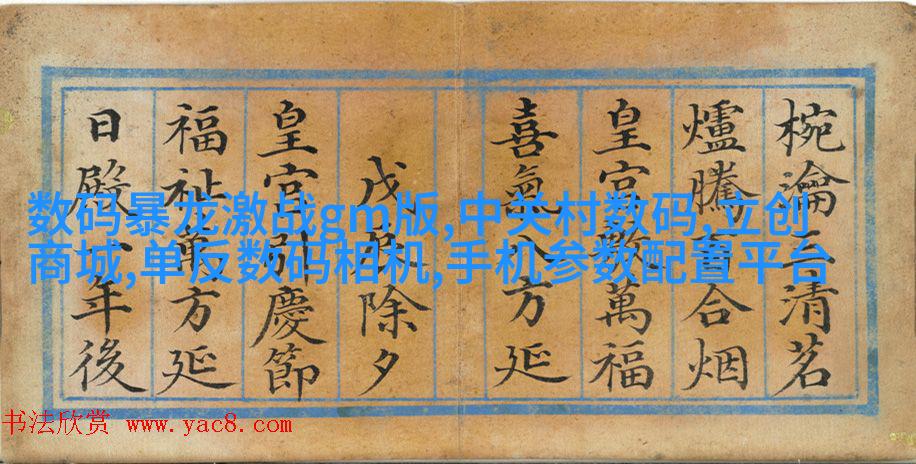 椀瀹三清茗
爐騰百合烟
皇宫敷萬福
喜氣八方延
戊辰除夕
皇宫引慶節
福祉萬方延
日殿一年後
数码暴龙激战gm版,中关村数码,立创
商城,单反数码相机,手机参数配置平台
书法欣赏 www.yac8.com